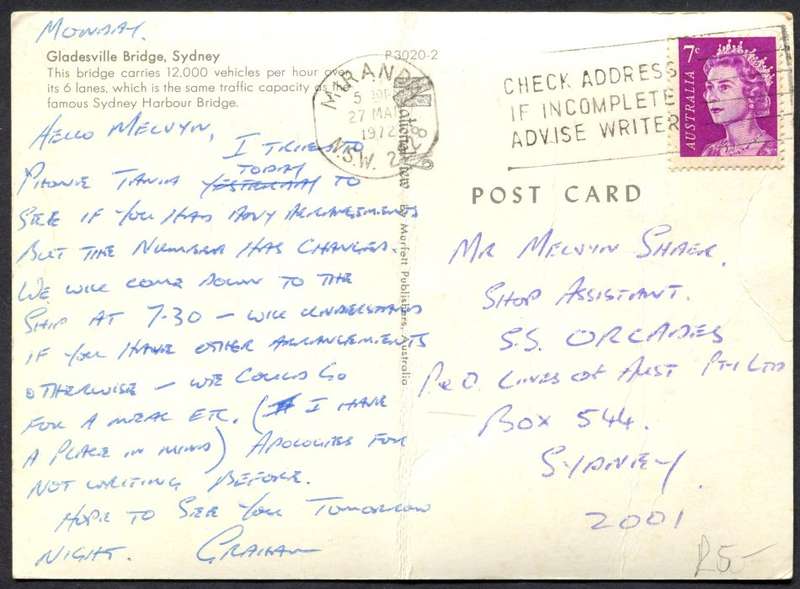 MONDAY.
Gladesville Bridge, Sydney
P3020-2
This bridge carries 12,000 vehicles per hour over
its 6 lanes, which is the same traffic capacity as the
famous Sydney Harbour Bridge.
HELLO MELVYN,
I TRIED TO
PHONE TANIA YESTERDAY TODAY TO
SEE IF YOU HAD ANY ARRANGEMENTS
BUT THE NUMBER HAS CHANGED.
WE WILL COME DOWN TO THE
SHIP AT 7.30 – WILL UNDERSTAND
IF YOU HAVE OTHER ARRANGEMENTS
OTHERWISE – WE COULD GO
FOR A MEAL ETC. (I HAVE
A PLACE IN MIND) APOLOGIES FOR
NOT WRITING BEFORE.
HOPE TO SEE YOU TOMORROW
NIGHT. GRAHAM
MIRANDA
27 MAR
1972
N.S.W. 2228
By Murfett Publishers, Australia.
CHECK ADDRESS
IF INCOMPLETE
ADVISE WRITER
7c
AUSTRALIA
POST CARD
MR MELVYN SHAER.
SHOP ASSISTANT.
S.S. ORCADES
P&O LINES OF AUST PTY LTD
BOX 544.
SYDNEY.
2001
R5-